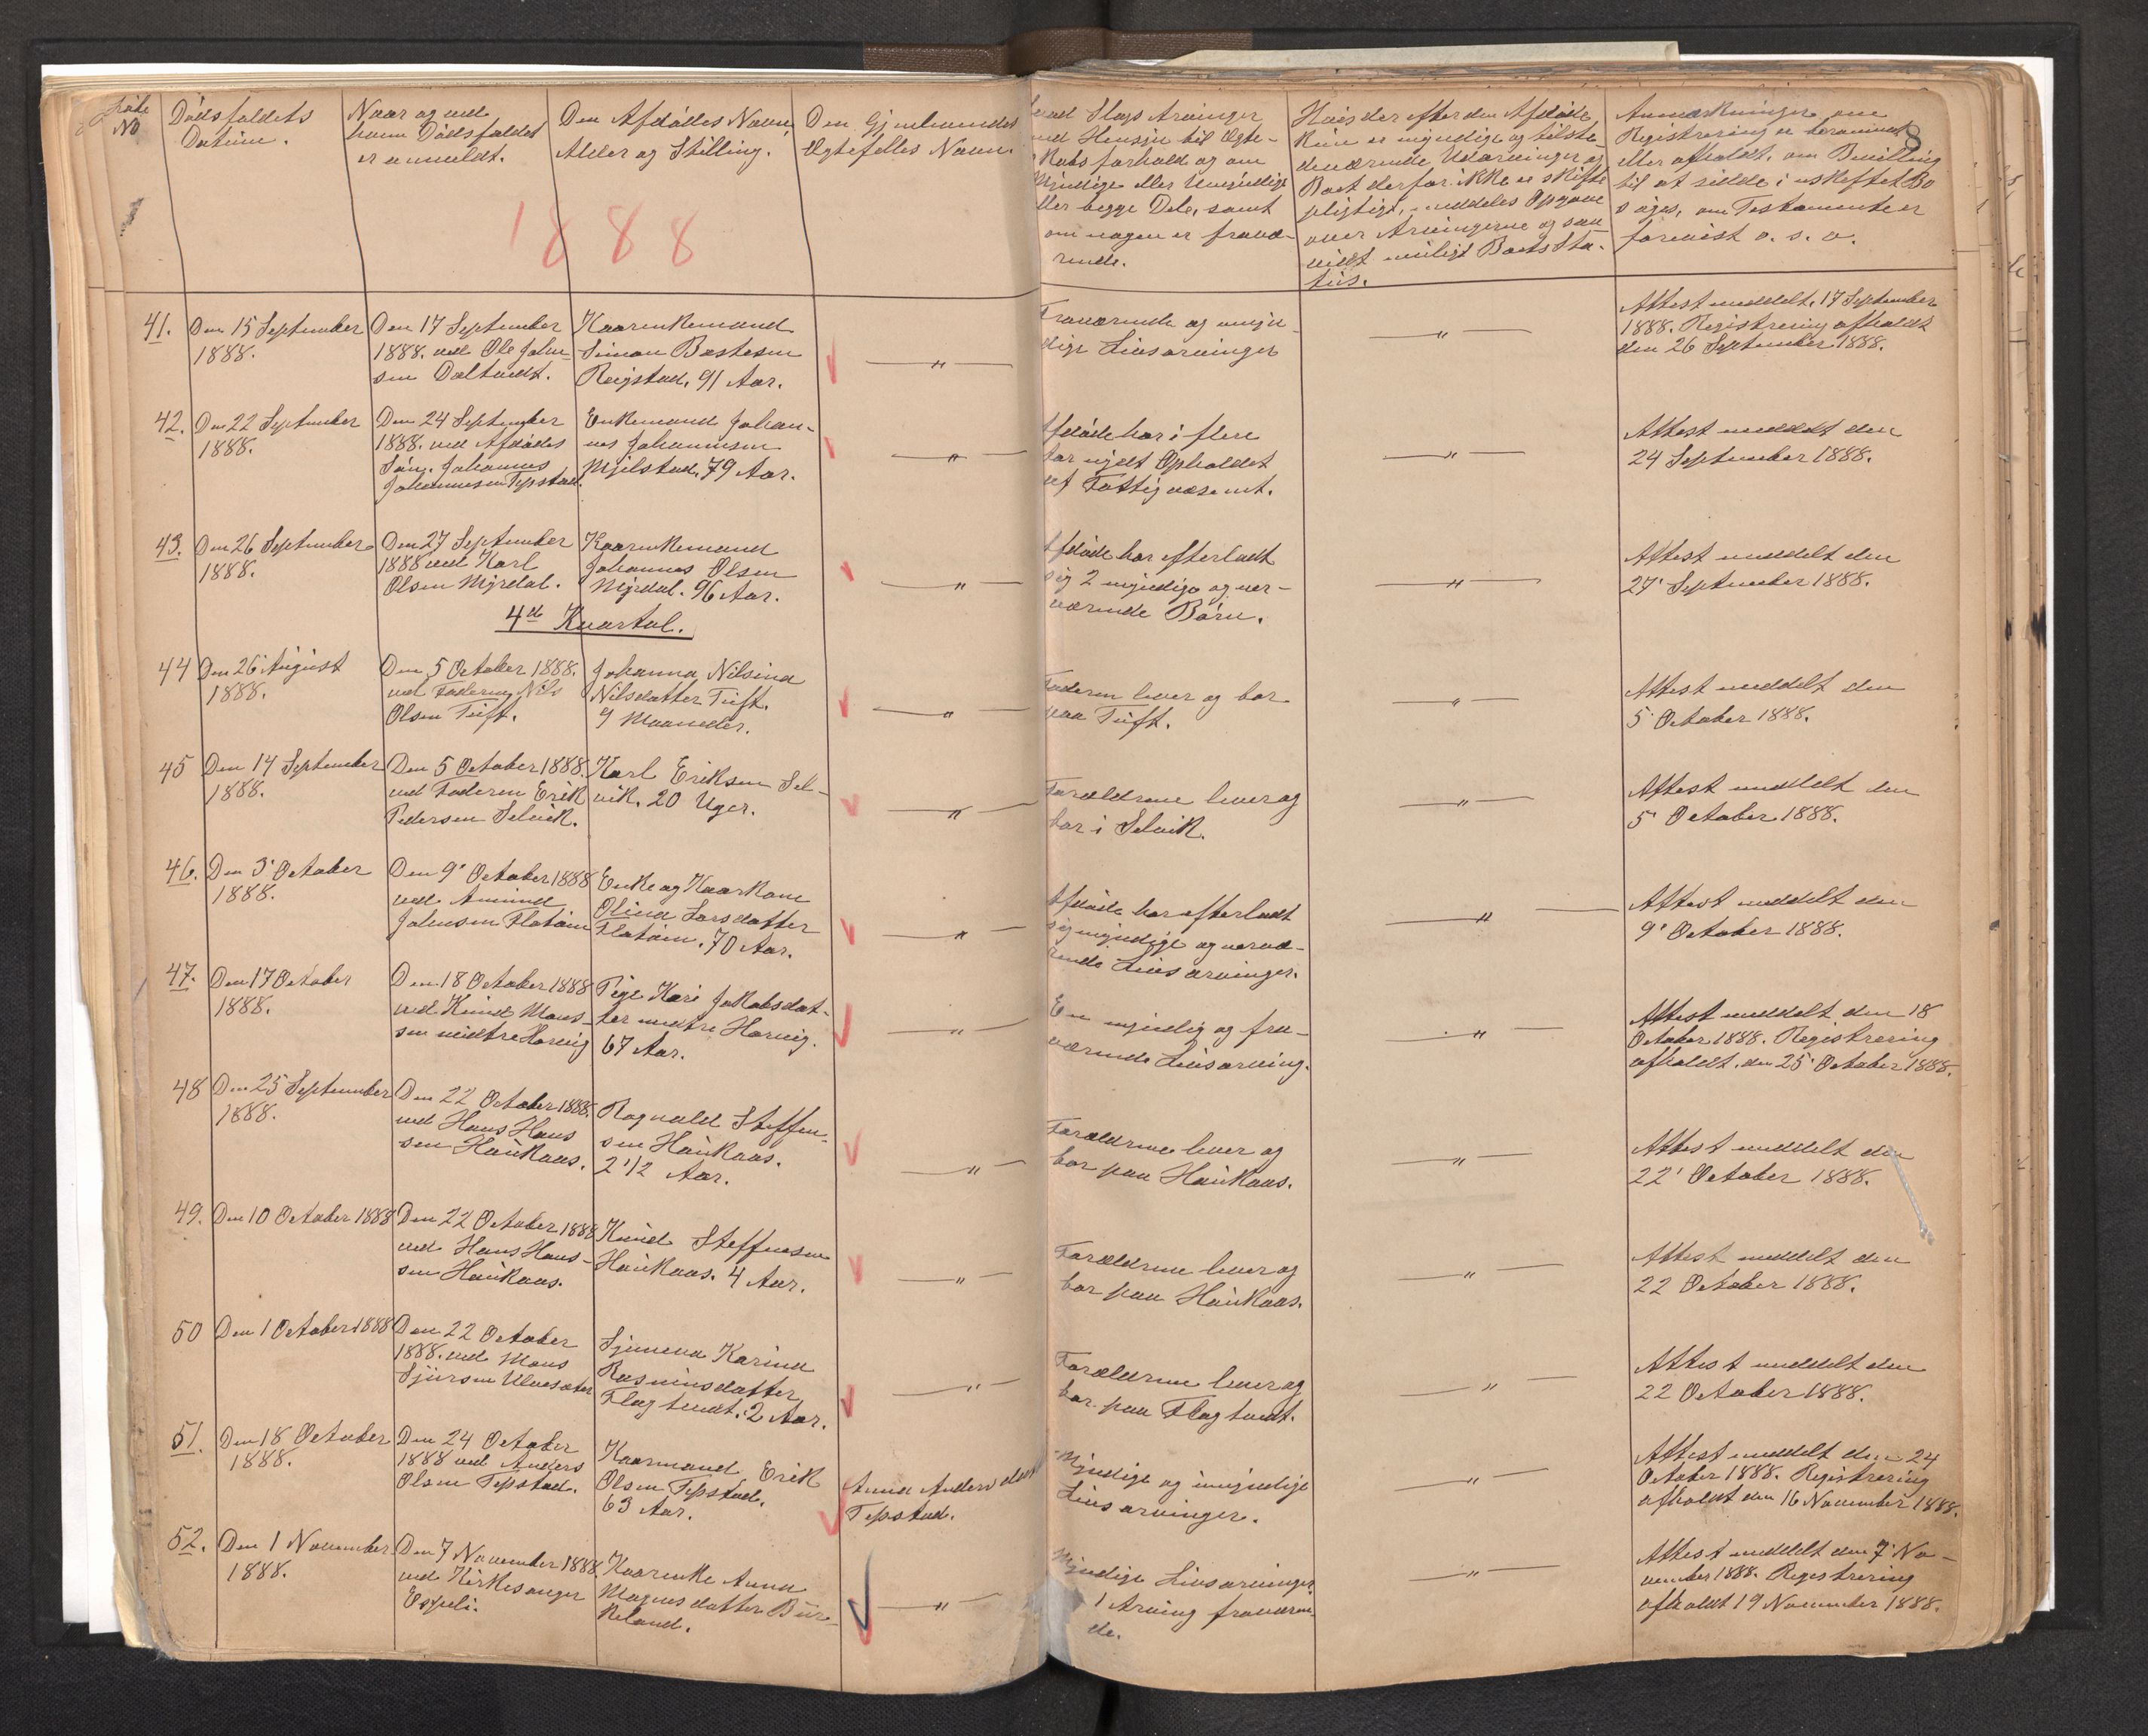 No
Dødsfaldets
Datum.
Naar og ved
hvem Dødsfaldet
er anmeldt.
Den Afdødes Navn,
Alder og Stilling.
Den Gjenlevendes
Ægtefelles Navn.
hvad Slags Arvinger
med Hensyn til Ægte-
skabsforhold og om
Myndige eller Umyndige
eller begge Dele, samt
om nogen er fravæ-
rende.
Hvis der efter den Afdøde
kun er myndige og tilste-
deværende Udarvinger og
Boet derfor ikke er skifte
pligtigt, meddeles Opgave
over Arvingerne og saa
vidt muligt Boets Sta-
tus.
Anmærkninger om
Registrering er berammet
eller afholdt, om Bevilling
til at sidde i uskiftet Bo
søges, om Testamente er
forevist o. s. v.
8
1888
41.
Den 15 September
1888.
Den 17 September
1888. ved Ole John-
sen Daltveit.
Kaarenkemand
Simon Bastesen
Røigstad, 91 Aar.
"
Fraværende og umyn-
dige Livsarvinger
"
Attest meddelt, 17 September
1888. Registrering afholdt
den 26 September 1888.
42.
Den 22 September
1888.
Den 24 September
1888. ved Afdødes
Søn, Johannes
Johannesen Tepstad.
Enkemand Johan-
nes Johannesen
Mjelstad, 79 Aar.
"
Afdøde har i flere
Aar nydt Opholdet
af Fattigvæsenet.
"
Attest meddelt den
24 September 1888.
43.
Den 26 September
1888.
Den 27 September
1888 ved Karl
Olsen Myrdal.
Kaarenkemand
Johannes Olsen
Myrdal. 96 Aar.
"
Afdøde har efterladt
sig 2 myndige og nær-
værende Børn.
"
Attest meddelt den
27' September 1888.
4de Kvartal.
44
Den 26 August
1888.
Den 5 October 1888.
ved Faderen, Nils
Olsen Tuft.
Johanna Nilsina
Nilsdatter Tuft.
9 Maaneder.
"
Faderen lever og bor
paa Tuft.
"
Attest meddelt den
5' October 1888.
45
Den 14 September
1888.
Den 5 October 1888.
ved Faderen Erik
Pedersen Selvik.
Karl Eriksen Sel-
vik. 20 Uger.
"
Forældrene lever og
bor i Selvik.
"
Attest meddelt den
5' October 1888.
46.
Den 3' October
1888.
Den 9' October 1888
ved Amund
Johnsen Flatøen
Enke og Kaarkone
Olina Larsdatter
Flatøen. 70 Aar.
"
Afdøde har efterladt
sig myndige og nærvæ-
rende Livsarvinger.
"
Attest meddelt den
9' October 1888.
47.
Den 17 October
1888.
Den 18 October 1888
ved Knud Mons-
sen midtre Havnig
Pige Kari Jakobsdat-
ter midtre Havnig.
67 Aar.
"
En myndig og fra-
værende Livsarving.
"
Attest meddelt den 18
October 1888. Registrering
afholdt den 25' October 1888.
48
Den 25 September
1888.
Den 22 October 1888.
ved Hans Hans
sen Haukaas.
Ragnvald Steffen-
sen Haukaas.
2 1/2 Aar.
"
Forældrene lever og
bor paa Haukaas.
"
Attest meddelt den
22' October 1888.
49.
Den 10 October 1888
Den 22 October 1888
ved Hans Hans-
sen Haukaas.
Knud Steffensen
Haukaas. 4 Aar.
"
Forældrene lever og
bor paa Haukaas.
"
Attest meddelt den
22 October 1888.
50
Den 1 October 1888
Den 22 October
1888. ved Mons
Sjursen Ulvesæter
Sjumena Karina
Rasmusdatter
Flagtvedt. 2 Aar.
"
Forældrene lever og
bor paa Flagtvedt.
"
Attest meddelt den
22 October 1888.
51.
Den 18 October
1888.
Den 24 October
1888 ved Anders
Olsen Tepstad.
Kaarmand Erik
Olsen Tepstad.
63 Aar.
Anna Andersdatter
Tepstad.
Myndige og umyndige
Livsarvinger.
"
Attest meddelt den 24
October 1888. Registrering
afholdt den 16 November 1888.
52.
Den 1 November
1888.
Den 7 November 1888
ved Kirkesanger
Espeli.
Kaarenke Anna
Magnesdatter Bur-
keland.
"
Myndige Livsarvinger.
1 Arving fraværen-
de.
"
Attest meddelt den 7' No-
vember 1888. Registrering
afholdt 19 November 1888.